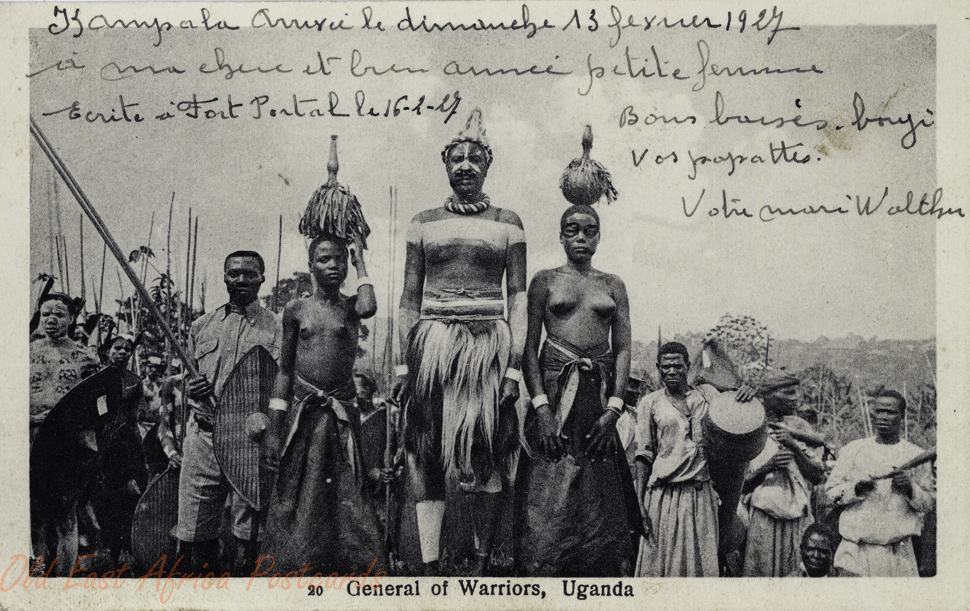 Kampala Arrivée le dimanche 13 fevrier 1927
à ma chere et bien aimée petite femme
Ecrite à Fort Portal le 16-2-27
Bons baisés
vos
Votre mari Walther
20 General of Warriors, Uganda
Old East Africa Postcards